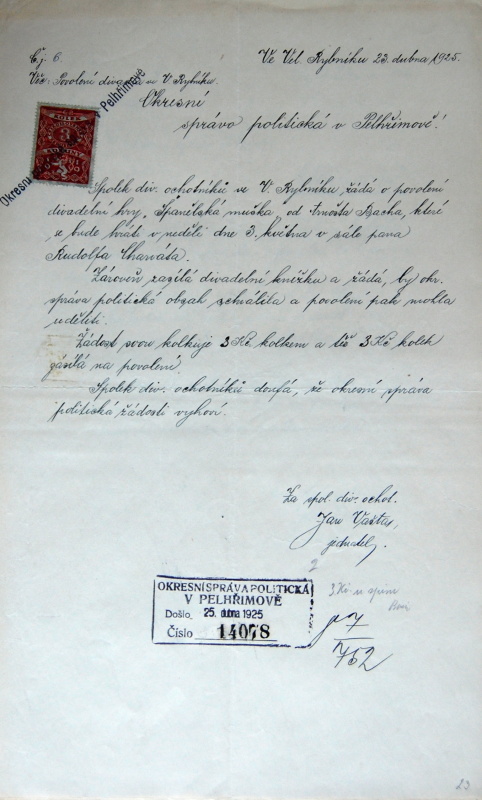 Č.j. 6.
Ve Vel. Rybníku 23. dubna 1925.
Věc: Povolení divadla ve V. Rybníku.
Okresní
správo politická v Pelhřimově!
Okresní
Pelhřimově
KOLEK
3
KORUNY
Spolek div. ochotníků ve V. Rybníku, žádá o povolení
divadelní hry „Španělská muška" od Arnošta Bacha, které
se bude hráti v neděli dne 3. května v sále pana
Rudolfa Charváta.
Zároveň zasílá divadelní knížku a žádá, by okr.
správa politická obsah schválila a povolení pak mohla
uděliti.
Žádost svou kolkuje 3 Kč kolkem a též 3 Kč kolek
zasílá na povolení.
Spolek div. ochotníků doufá, že okresní správa
politická žádosti vyhoví.
Za spol. div. ochot.
Jan Vaštas,
jednatel.
2
OKRESNÍ SPRÁVA POLITICKÁ
V PELHŘIMOVĚ
Došlo 25. dubna 1925
Číslo 14078
3 Kč
V/762
23